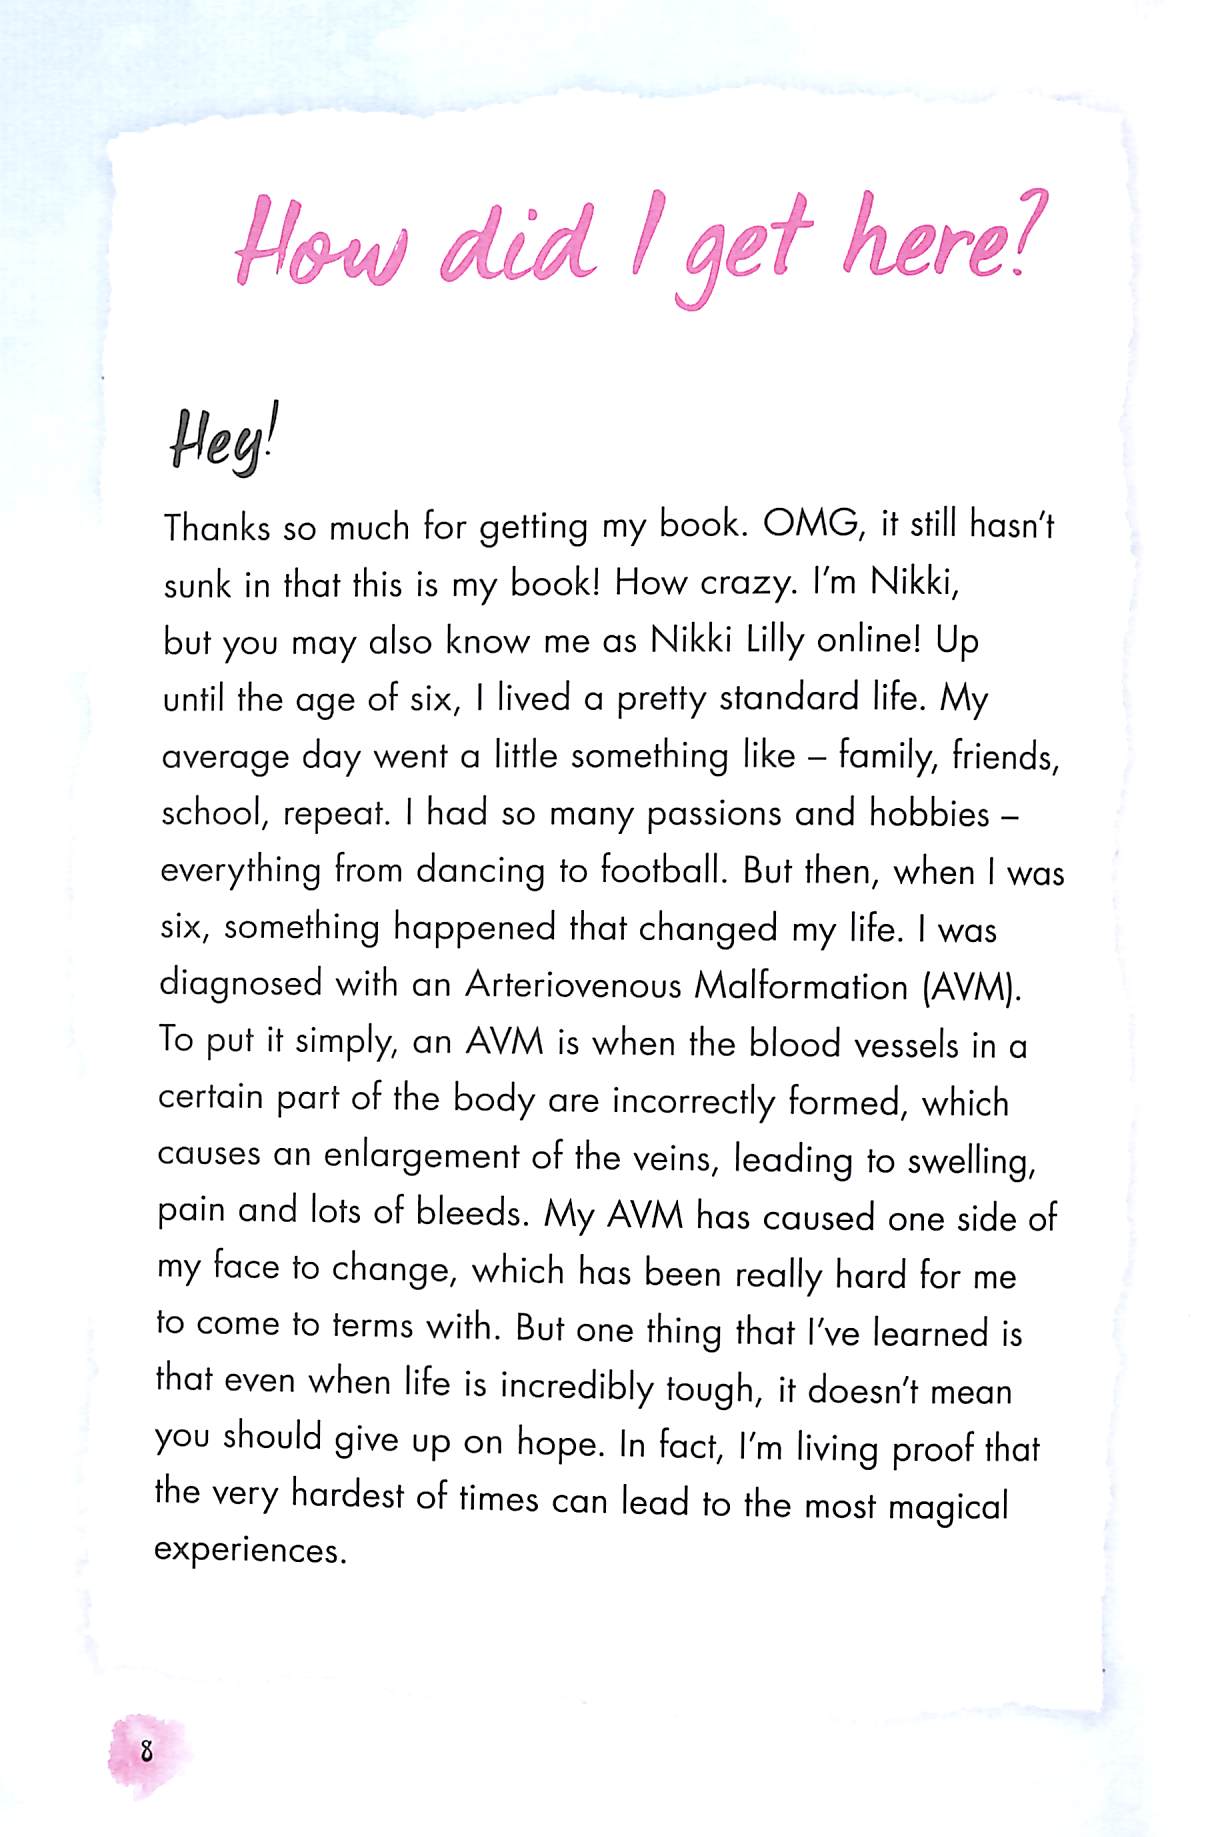 How did I get here?
Hey!
Thanks so much for getting my book. OMG, it still hasn't
sunk in that this is my book! How crazy. I'm Nikki,
but you may also know me as Nikki Lilly online! Up
until the age of six, I lived a pretty standard life. My
average day went a little something like – family, friends,
school, repeat. I had so many passions and hobbies –
everything from dancing to football. But then, when I was
six, something happened that changed my life. I was
diagnosed with an Arteriovenous Malformation (AVM).
To put it simply, an AVM is when the blood vessels in a
certain part of the body are incorrectly formed, which
causes an enlargement of the veins, leading to swelling,
pain and lots of bleeds. My AVM has caused one side of
my face to change, which has been really hard for me
to come to terms with. But one thing that I've learned is
that even when life is incredibly tough, it doesn't mean
you should give up on hope. In fact, I'm living proof that
the very hardest of times can lead to the most magical
experiences.
8